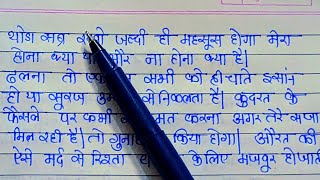 थोडा सब्र रखो जल्दी ही महसूस होगा मेरा
होना क्या था और ना होना क्या है।
ढलना तो सभी को ही चाहे इन्सांन
हो या सुरज से निकलता है। कुदरत के
फैसले पर कभी मत करना अगर तेरे सजा
मिल रही है। तो गुनाह किया होगा। औरत की
ऐसे मर्द से रिश्ता के लिए मजबूर हो जाती